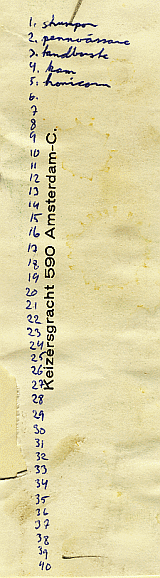 1. shampoo
2. pennvässare
3. tandborste
4. kam
5.
6.
7
8
9
10
11
12
13
14
15
16
17
18
19
20
21
22
23
24
25
26
27
28
29
30
31
32
33
34
35
36
37
38
39
40
Keizersgracht 590 Amsterdam-C.